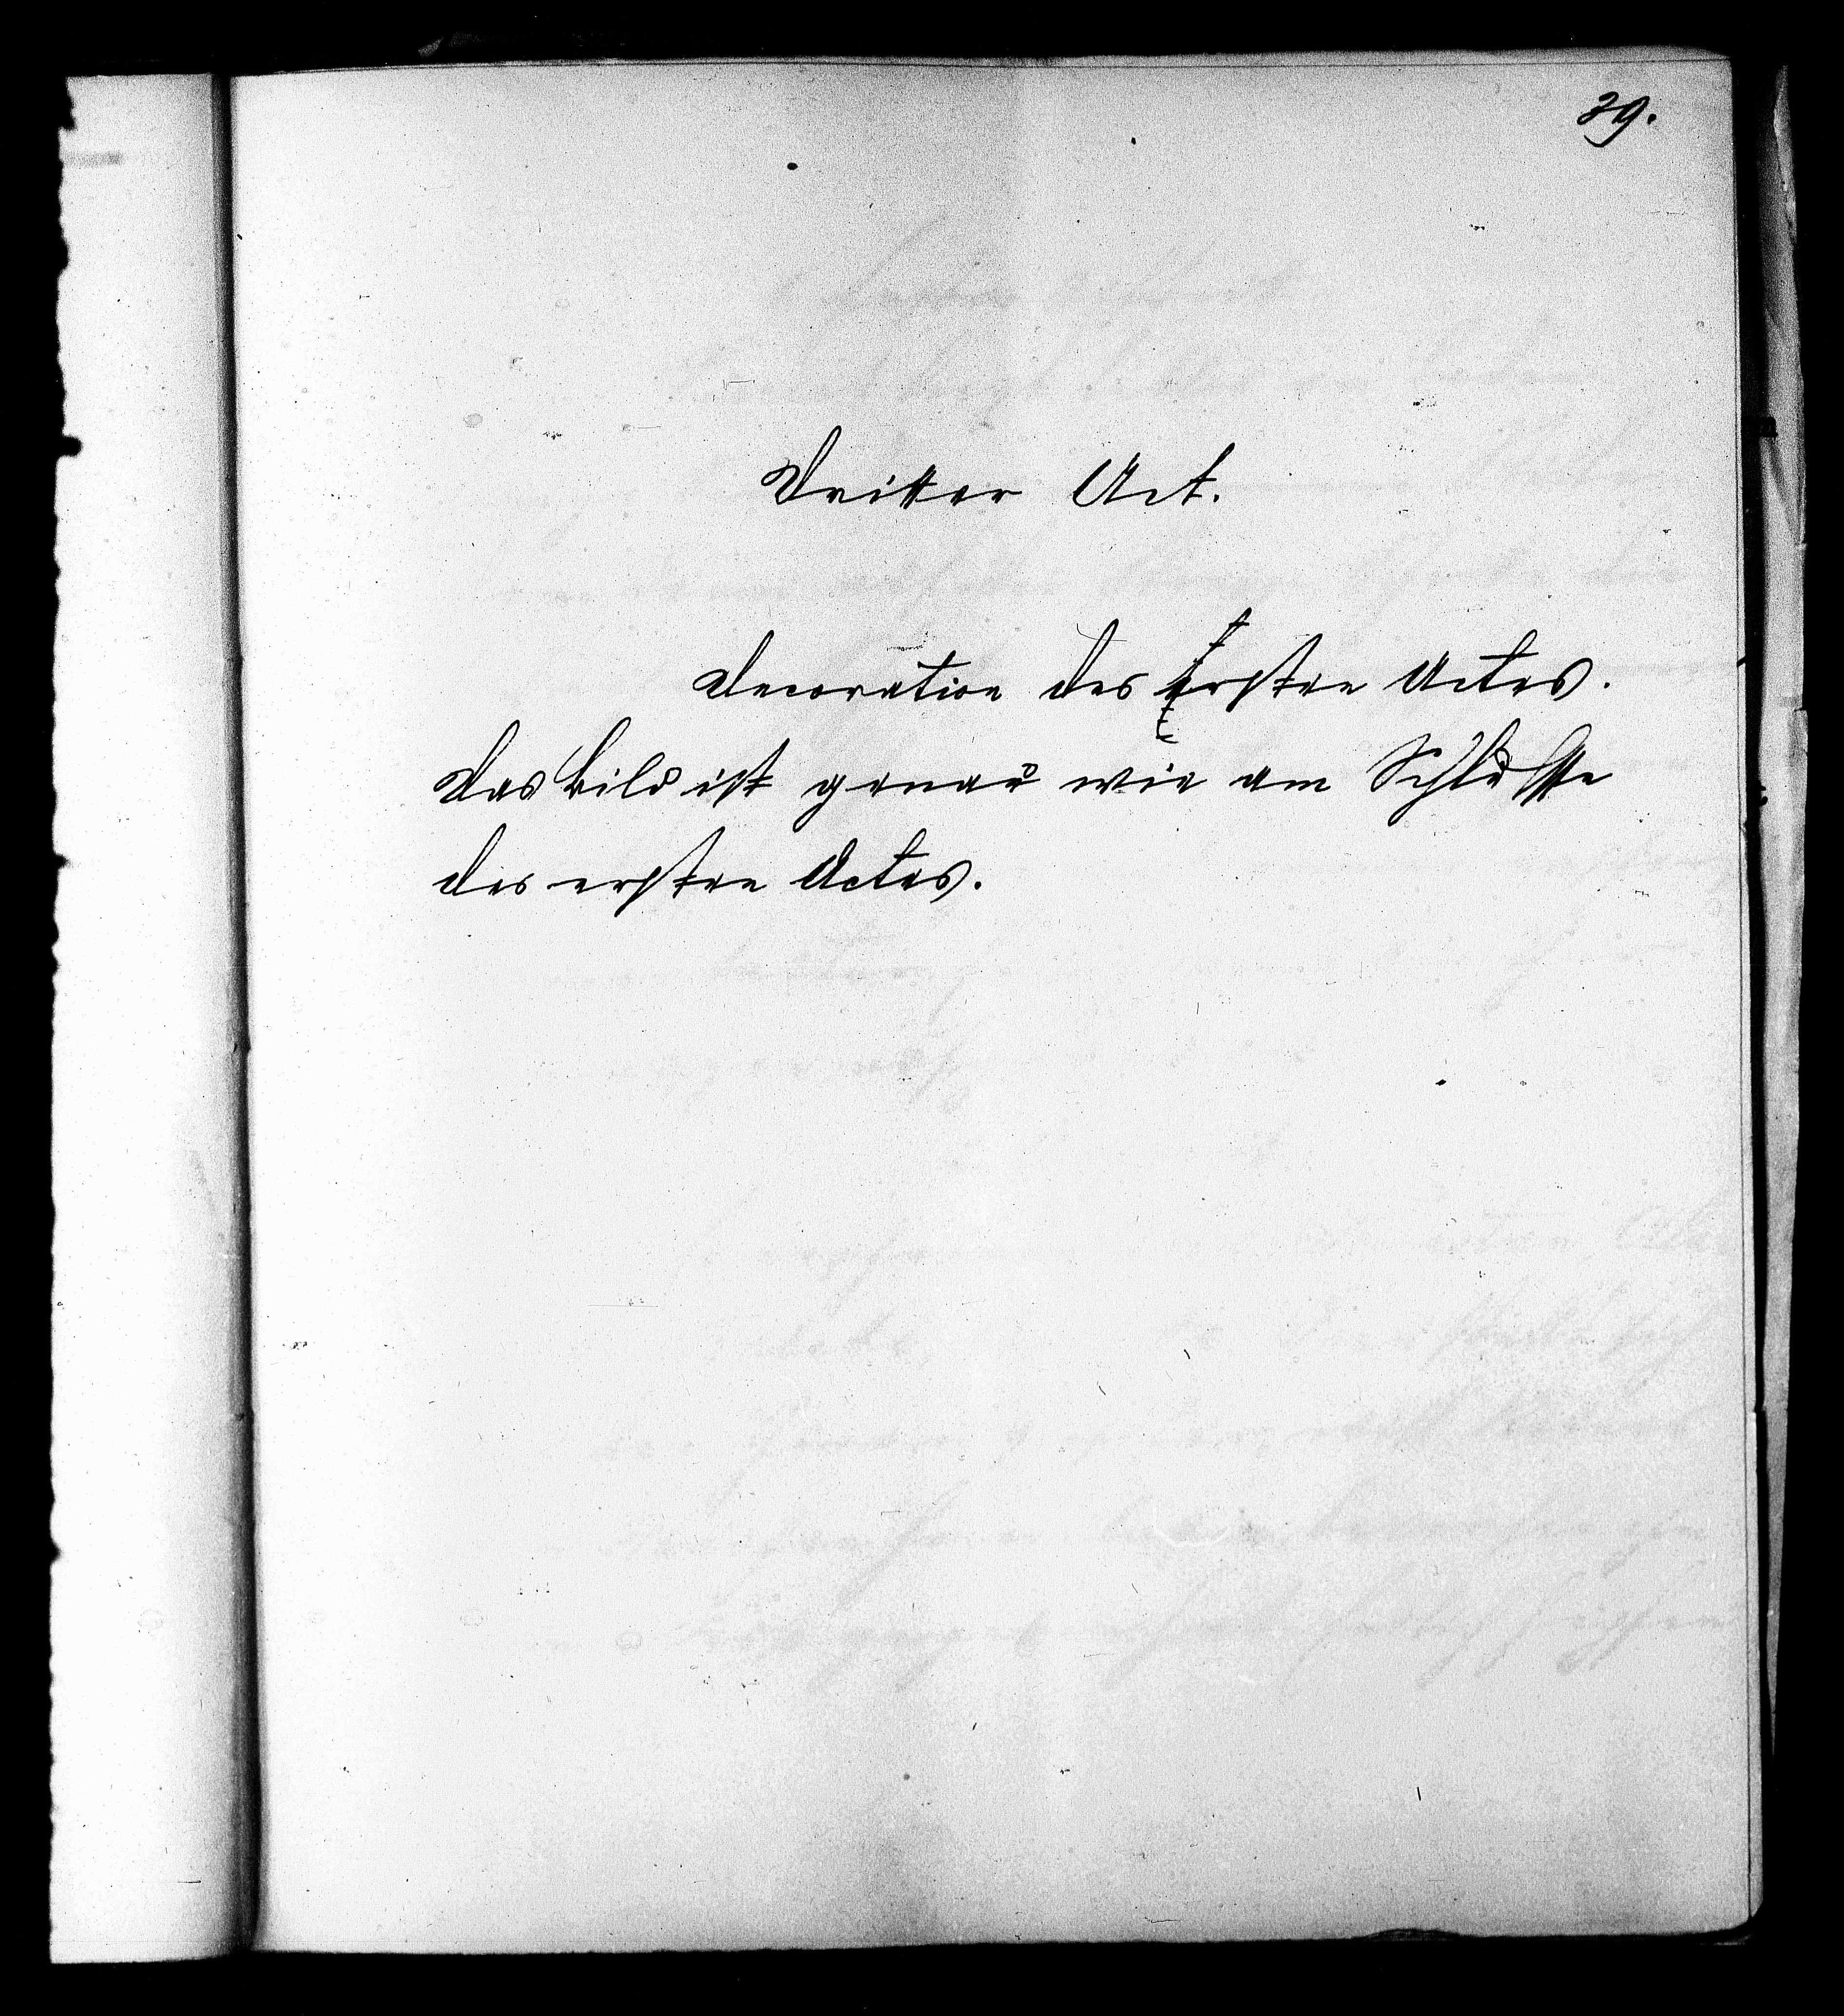 39.
Dritter Act.
Decoration des ersten Actes.
Das Bild ist genau wie am Schlusse
des ersten Actes.